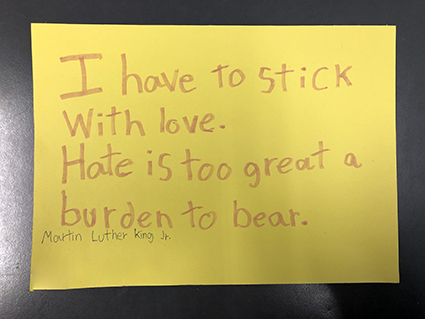 I have to stick
With love.
Hate is too great a
burden to bear.
Martin Luther King Jr.